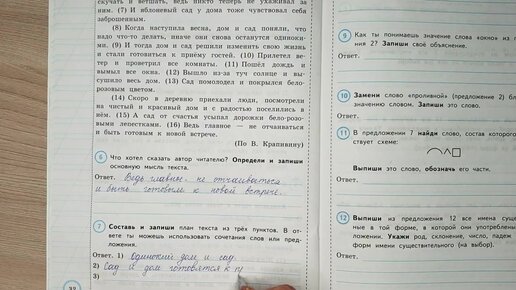 скучать и ветшать, ведь никто теперь не ухаживал за
ним. (7) И яблоневый сад у дома тоже чувствовал себя
заброшенным.
(8) Когда наступила весна, дом и сад поняли, что
надо что-то делать, иначе они снова останутся одиноки-
ми. (9) И тогда дом и сад решили изменить свою жизнь
и стали готовиться к приёму гостей. (10) Прилетел ве-
тер и проветрил все комнаты. (11) Пошёл дождь и
вымыл все окна. (12) Вышло из-за туч солнце и вы-
сушило весь дом. (13) Сад помолодел и покрылся бело-
розовым цветом.
(14) Скоро в деревню приехали люди, посмотрели
на чистый и красивый дом и с радостью поселились в
нём. (15) А сад от счастья усыпал дорожки бело-розо-
выми лепестками. (16) Ведь главное — не отчаиваться
и быть готовым к новой встрече.
(По В. Крапивину)
6 Что хотел сказать автор читателю? Определи и запиши
основную мысль текста.
Ответ. Ведь главное не отчаиваться
и быть готовым к новой встрече.
7 Составь и запиши план текста из трёх пунктов. В от-
вете ты можешь использовать сочетания слов или пред-
ложения.
Ответ. 1) Одинокий дом и сад.
2) Сад и дом готовятся к п
3)
9 Как ты понимаешь значение слова
ния 2? Запиши своё объяснение.
Ответ.
10 Замени слово «проливной» (предложение 2) бли
значению словом. Запиши это слово.
Ответ.
11 В предложении 7 найди слово, состав которого
ствует схеме:
Выпиши это слово, обозначь его части.
Ответ.
12 Выпиши из предложения 12 все имена сущ
ные в той форме, в которой они употреблены
жении. Укажи род, склонение, число, падеж
форм имени существительного (на выбор).
Ответ.